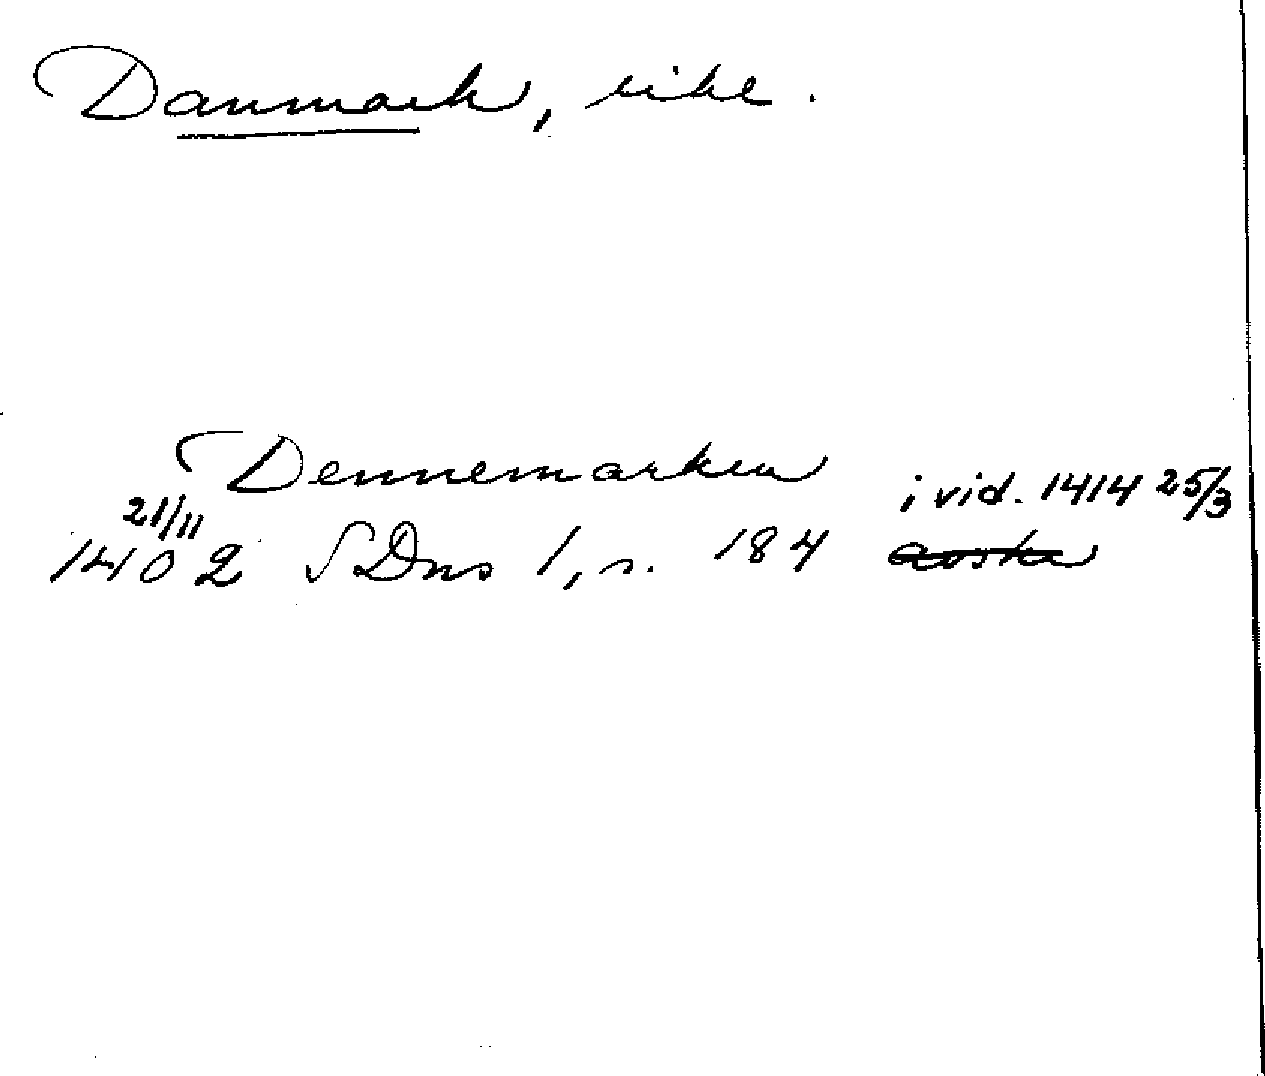 Danmark, rike.
Dennemarken
i vid. 1414 25/3
21/11
1402 SDns 1, s. 184 avskr